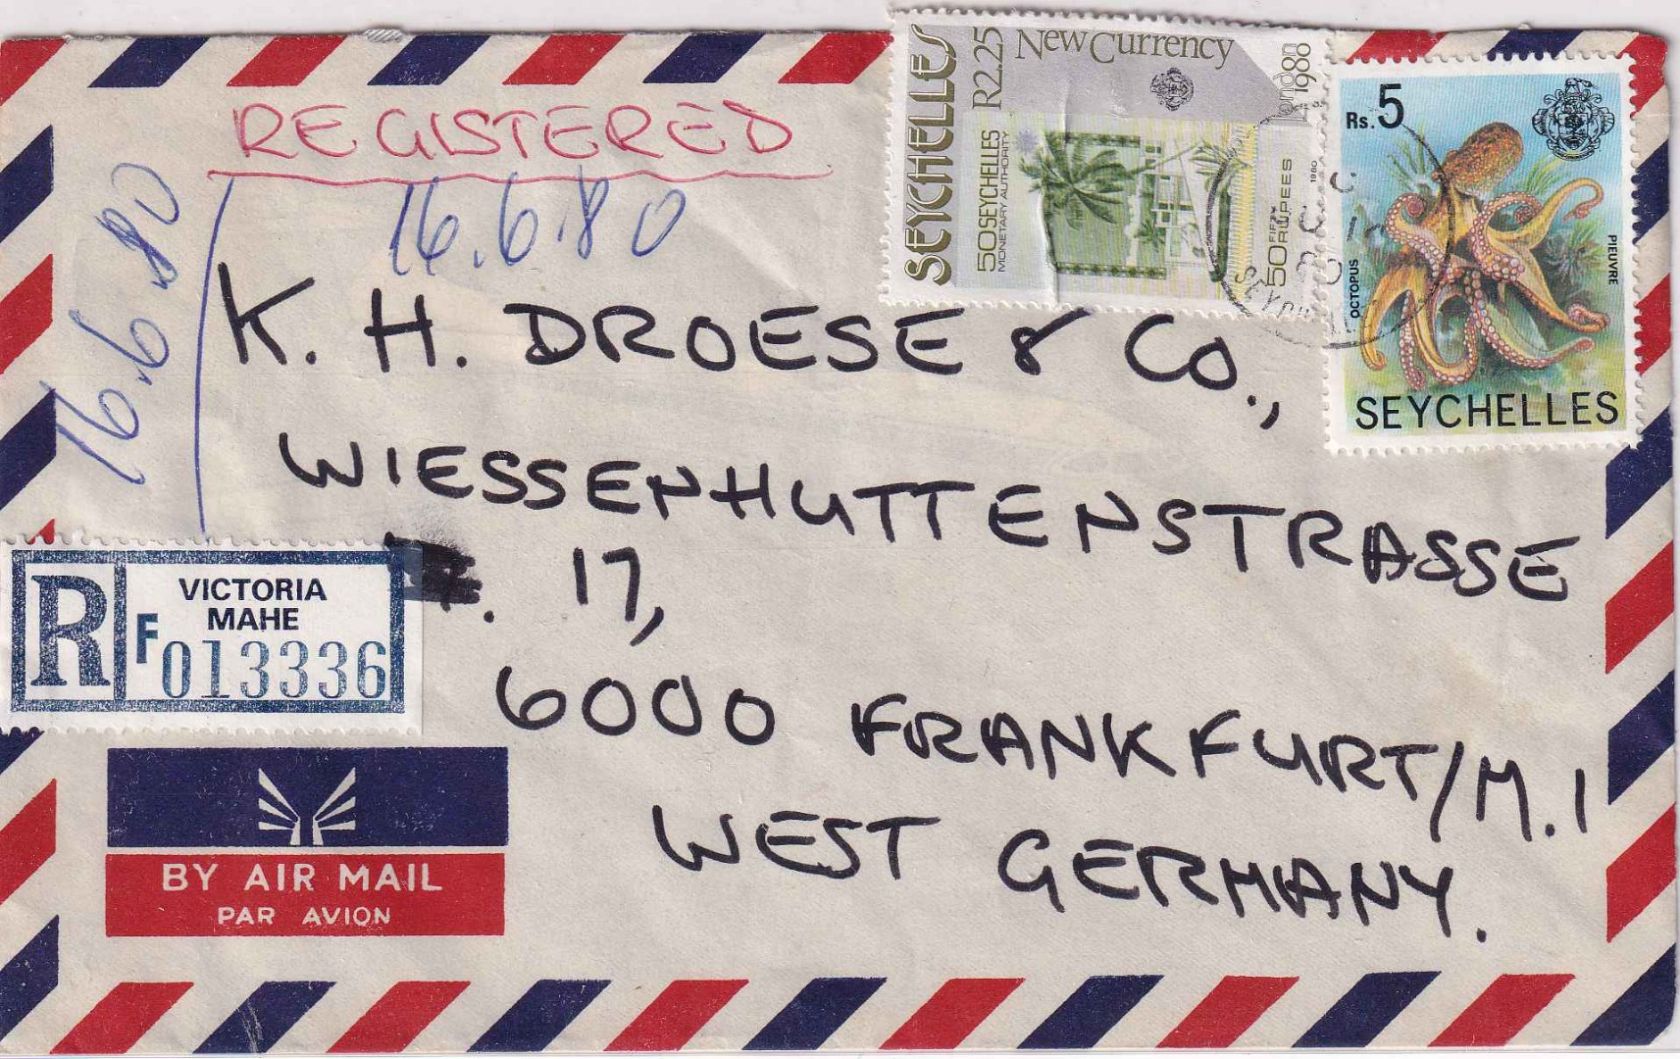 REGISTERED
16.6.80
16.6.80
SEYCHELLES
R2.25
New Currency
London 1980
50 SEYCHELLES
MONETARY AUTHORITY
FIFTY
50 RUPEES
1980
Rs.5
OCTOPUS
PIEUVRE
SEYCHELLES
K. H. DROESE & CO.,
WIESSENHUTTENSTRASSE
17,
6000 FRANKFURT/M. 1
WEST GERMANY.
R
VICTORIA
MAHE
F 013336
BY AIR MAIL
PAR AVION